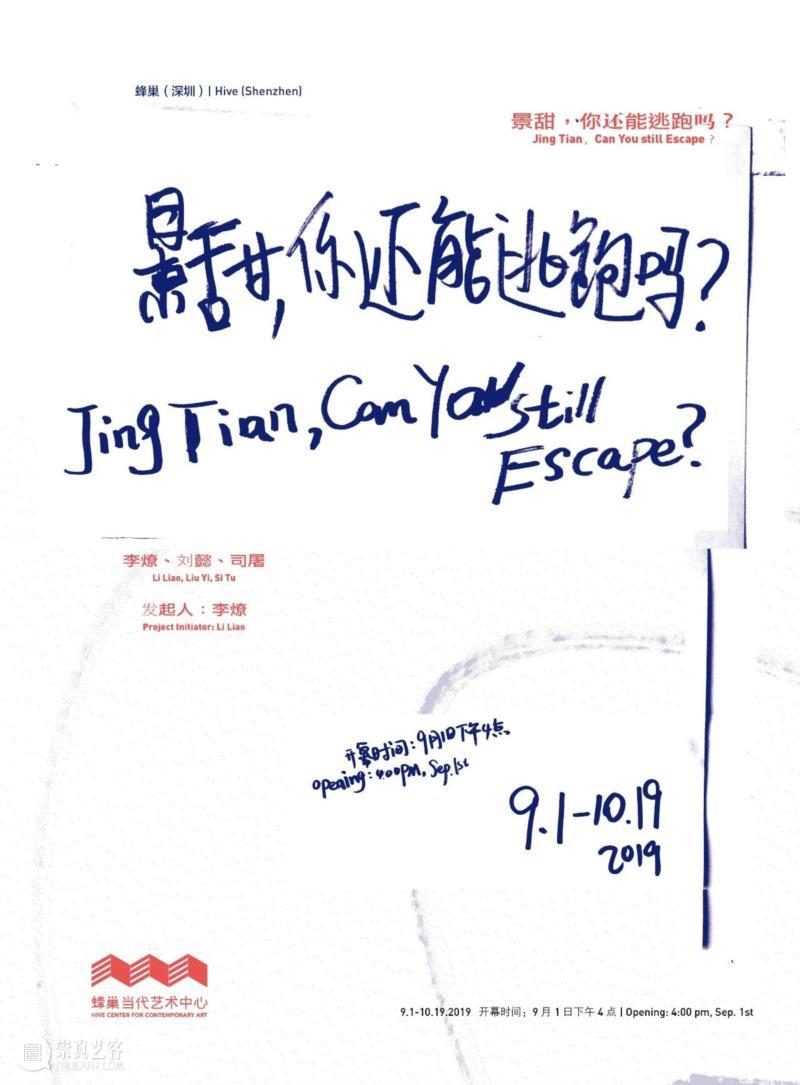 蜂巢（深圳）| Hive (Shenzhen)
景甜，你还能逃跑吗？
Jing Tian, Can You still Escape ?
景甜,你还能逃跑吗?
Jing Tian, Can You Still
Escape?
李燎、刘懿、司屠
Li Liao, Liu Yi, Si Tu
发起人：李燎
Project Initiator: Li Liao
开幕时间:9月1日下午4点
opening:4:00pm, Sep.1st
9.1-10.19
2019
蜂巢当代艺术中心
HIVE CENTER FOR CONTEMPORARY ART
9.1-10.19.2019 开幕时间：9月1日下午4点 | Opening: 4:00 pm, Sep. 1st
崇真艺客
TRUEART.COM